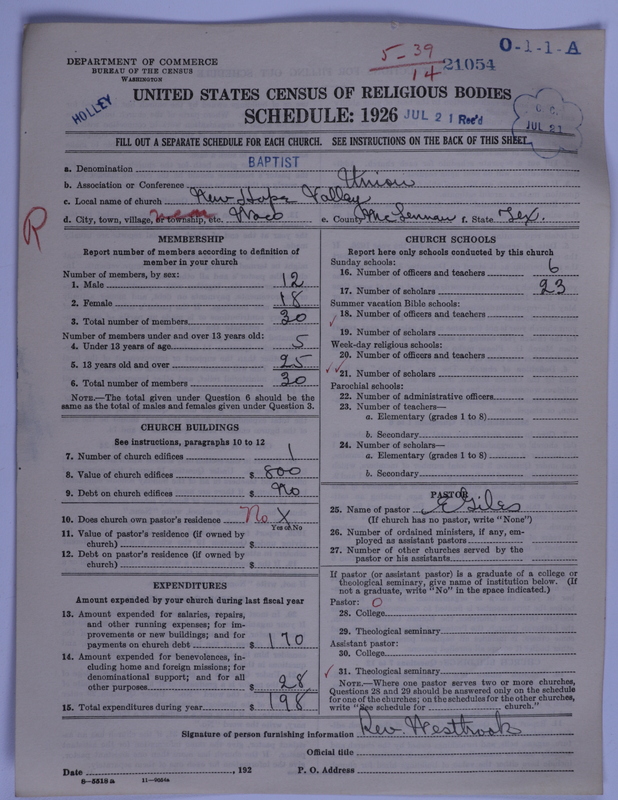 O-1-1-A
5-39
14
21054
DEPARTMENT OF COMMERCE
BUREAU OF THE CENSUS
WASHINGTON
HOLLEY
UNITED STATES CENSUS OF RELIGIOUS BODIES
SCHEDULE: 1926 JUL 21 Rec'd
C. C.
JUL 21
FILL OUT A SEPARATE SCHEDULE FOR EACH CHURCH. SEE INSTRUCTIONS ON THE BACK OF THIS SHEET
a. Denomination BAPTIST
b. Association or Conference Union
c. Local name of church New Hope Valley
d. City, town, village, or township, etc. Waco e. County McLennan f. State Tex.
R
MEMBERSHIP
Report number of members according to definition of
member in your church
Number of members, by sex:
1. Male 12
2. Female 18
3. Total number of members 30
Number of members under and over 13 years old:
4. Under 13 years of age 5
5. 13 years old and over 25
6. Total number of members 30
NOTE.—The total given under Question 6 should be the
same as the total of males and females given under Question 3.
CHURCH BUILDINGS
See instructions, paragraphs 10 to 12
7. Number of church edifices 1
8. Value of church edifices $ 800
9. Debt on church edifices $ No
10. Does church own pastor's residence No X
Yes or No
11. Value of pastor's residence (if owned by
church) $
12. Debt on pastor's residence (if owned by
church) $
EXPENDITURES
Amount expended by your church during last fiscal year
13. Amount expended for salaries, repairs,
and other running expenses; for im-
provements or new buildings; and for
payments on church debt $ 170
14. Amount expended for benevolences, in-
cluding home and foreign missions; for
denominational support; and for all
other purposes 28
15. Total expenditures during year $ 198
CHURCH SCHOOLS
Report here only schools conducted by this church
Sunday schools:
16. Number of officers and teachers 6
17. Number of scholars 23
Summer vacation Bible schools:
18. Number of officers and teachers
19. Number of scholars
Week-day religious schools:
20. Number of officers and teachers
21. Number of scholars
Parochial schools:
22. Number of administrative officers
23. Number of teachers—
a. Elementary (grades 1 to 8)
b. Secondary
24. umber of scholars—
a. Elementary (grades 1 to 8)
b. Secondary
PASTOR
25. Name of pastor E Giles
(If church has no pastor, write "None")
26. Number of ordained ministers, if any, em-
ployed as assistant pastors
27. Number of other churches served by the
pastor or his assistants
If pastor (or assistant pastor) is a graduate of a college or
theological seminary, give name of institution below. (If
not a graduate, write "No" in the space indicated.)
Pastor: O
28. College
29. Theological seminary
Assistant pastor:
30. College
31. Theological seminary
NOTE.—Where one pastor serves two or more churches,
Questions 28 and 29 should be answered only on the schedule
for one of the churches; on the schedules for the other churches,
write "See schedule for church."
Signature of person furnishing information Rev. Westbrook
Official title
Date , 192 P. O. Address
8-5518a 11-9054a